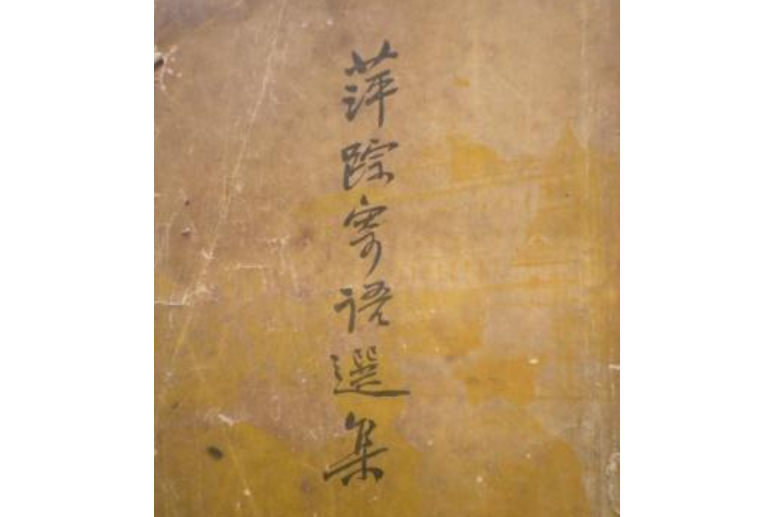 萍踪寄语選集